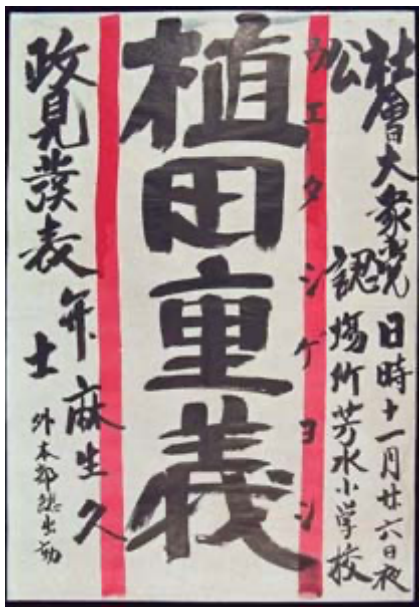 社會大衆党 公認
日時十一月廿六日夜
場所芳水小学校
ウエタシゲヨシ
植田重義
政見發表
弁士 麻生久
外本部総出動